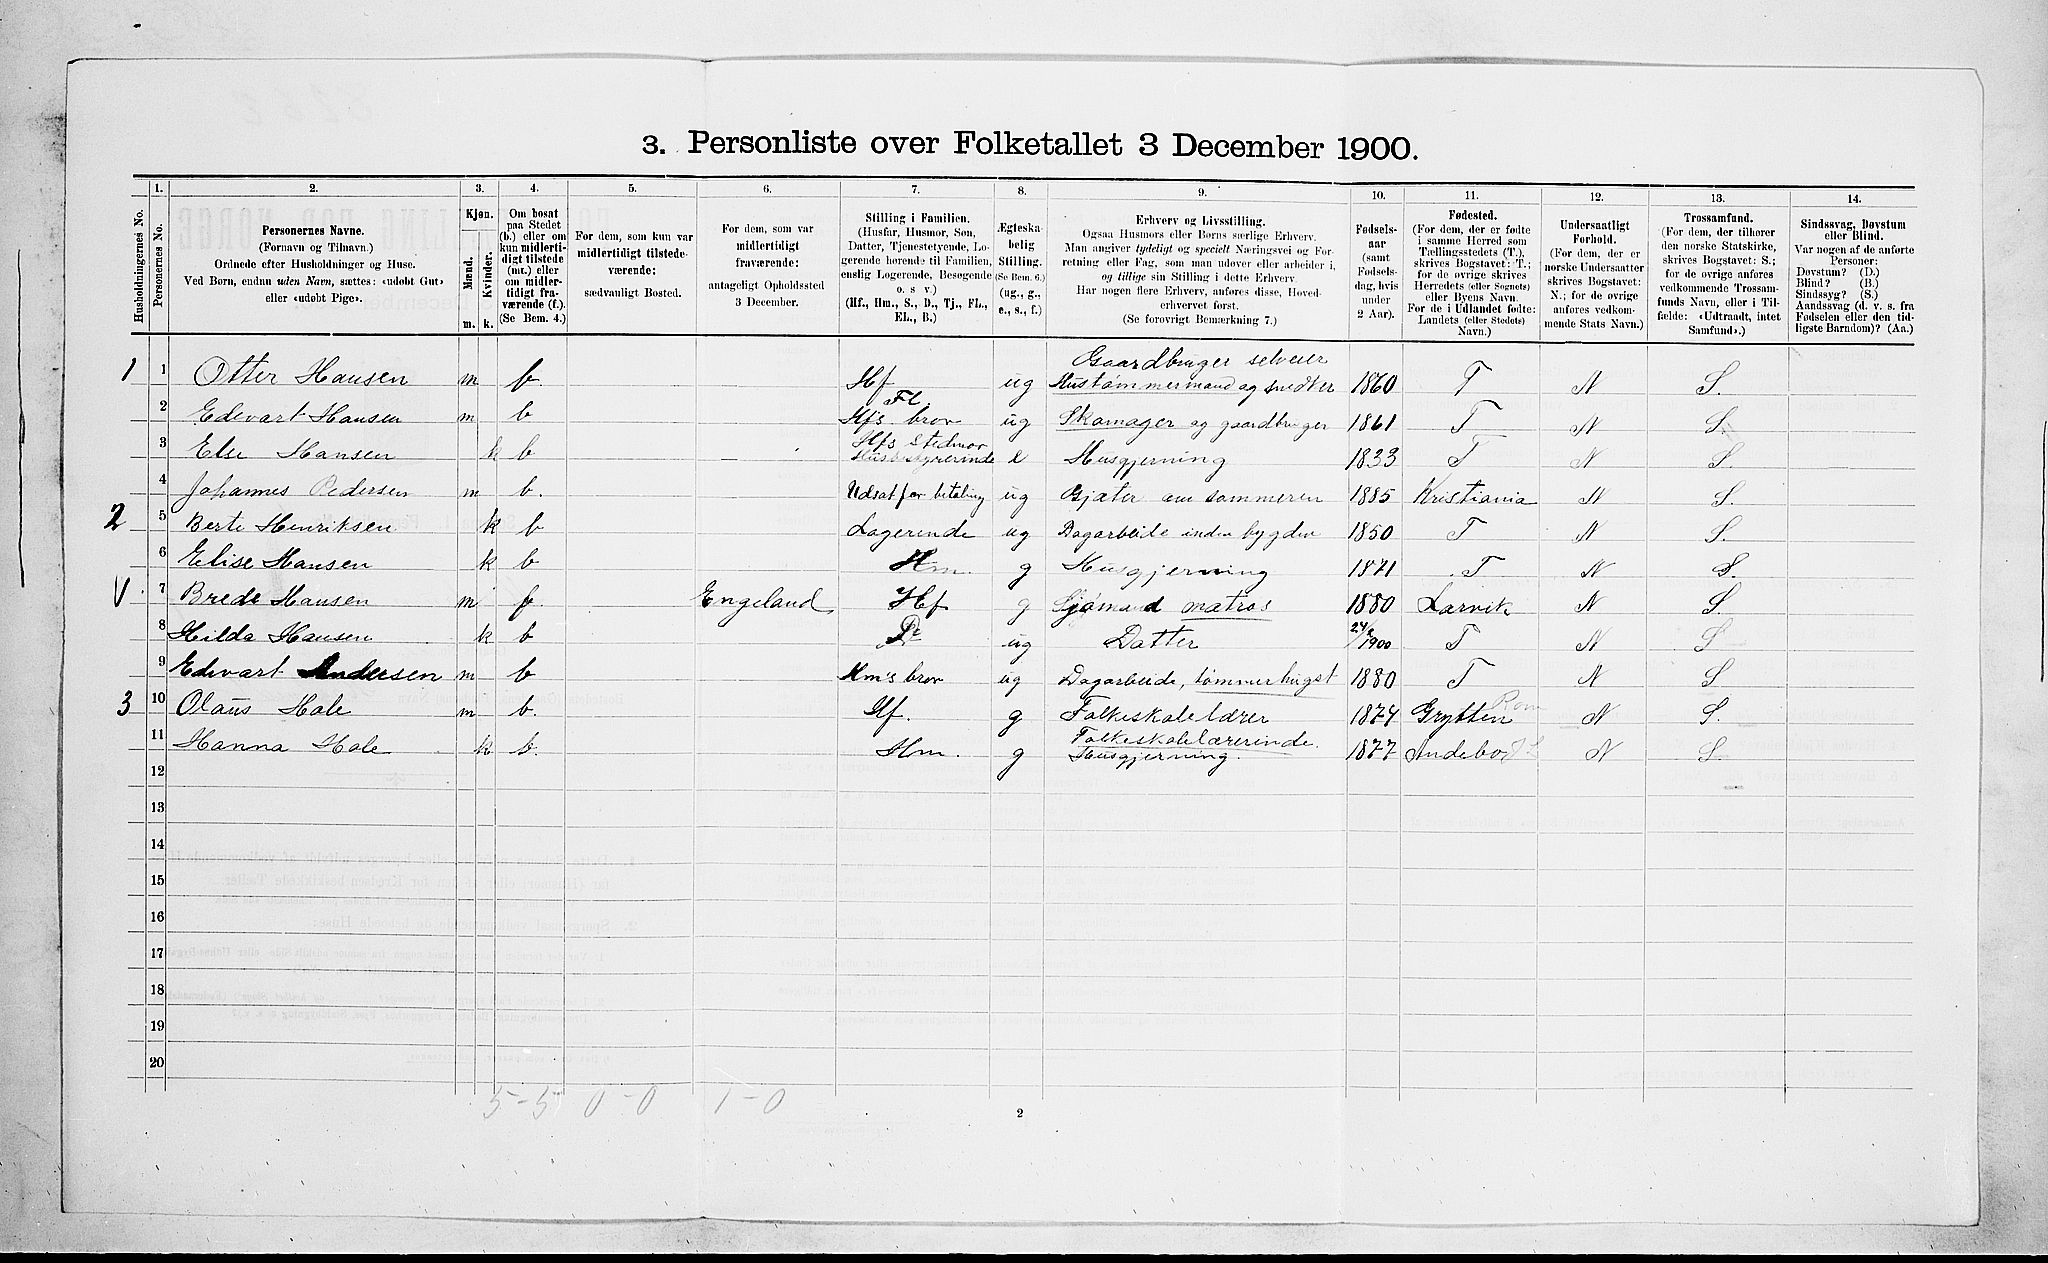 3. Personliste over Folketallet 3 December 1900.
Husholdningernes No.
1. Personernes No.
2. Personernes Navne. (Fornavn og Tilnavn.) Ordnede efter Husholdninger og Huse. Ved Børn, endnu uden Navn, sættes: «udøbt Gut» eller «udøbt Pige».
3. Kjøn. Mænd. m. Kvinder. k.
4. Om bosat paa Stedet (b.) eller om kun midlertidigt tilstede (mt.) eller om midlertidigt fraværende (f.). (Se Bem. 4.)
5. For dem, som kun var midlertidigt tilstedeværende: sædvanligt Bosted.
6. For dem, som var midlertidigt fraværende: antageligt Opholdssted 3 December.
7. Stilling i Familien. (Husfar, Husmor, Søn, Datter, Tjenestetyende, Logerende hørende til Familien, enslig Logerende, Besøgende o. s. v.) (Hf., Hm., S., D., Tj., FL., EL., B.)
8. Ægteskabelig Stilling. (Se Bem. 6.) (ug., g., e., s., f.)
9. Erhverv og Livsstilling. Ogsaa Husmors eller Børns særlige Erhverv. Man angiver tydeligt og specielt Næringsvei og Forretning eller Fag, som man udøver eller arbeider i, og tillige sin Stilling i dette Erhverv. Har nogen flere Erhverv, anføres disse, Hovederhvervet først. (Se forøvrigt Bemærkning 7.)
10. Fødselsaar (samt Fødselsdag, hvis under 2 Aar).
11. Fødested. (For dem, der er fødte i samme Herred som Tællingsstedets (T.), skrives Bogstavet: T.; for de øvrige skrives Herredets (eller Sognets) eller Byens Navn. For de i Udlandet fødte: Landets (eller Stedets) Navn.)
12. Undersaatligt Forhold. (For dem, der er norske Undersaatter skrives Bogstavet: N.; for de øvrige anføres vedkommende Stats Navn.)
13. Trossamfund. (For dem, der tilhører den norske Statskirke, skrives Bogstavet: S.; for de øvrige anføres vedkommende Trossamfunds Navn, eller i Tilfælde: «Udtraadt, intet Samfund».)
14. Sindssvag, Døvstum eller Blind. Var nogen af de anførte Personer: Døvstum? (D.) Blind? (B.) Sindssyg? (S.) Aandssvag (d. v. s. fra Fødselen eller den tidligste Barndom)? (Aa.)
1 1 Otter Hansen m b. Hf ug Gaardbruger selveier Hustømmermand og snedker 1860 T N S.
2 Edevart Hansen m b Fl. Hf's bror ug Skomager og gaardbruger 1861 T N S
3 Else Hansen k b Hfs stedmor Husbestyrerinde e Husgjerning 1833 T N S.
4 Johannes Pedersen m b. Udsat for betaling ug Gjæter om sommeren 1885 Kristiania N S.
2 5 Berte Henriksen k b Logerende ug Dagarbeide inden bygden 1850 T N S.
6 Elise Hansen k b Hm. g Husgjerning 1871 T N S.
V 7 Brede Hansen m f. Engeland Hf g Sjømand matros 1880 Larvik N S.
8 Hilda Hansen k b D ug Datter 24/2 1900 T N S
9 Edvart Andersen m b Hm's bror ug Dagarbeide, tømmerhugst 1880 T N S
3 10 Olaus Hole m b. Hf. g Folkeskolelærer 1874 Grytten Rom N S.
11 Hanna Hole k b. Hm. g Folkeskolelærerinde. Husgjerning. 1877 Andebo N S.
12
13
14
15
16
17
18
19
20
5-5 0-0 1-0
2